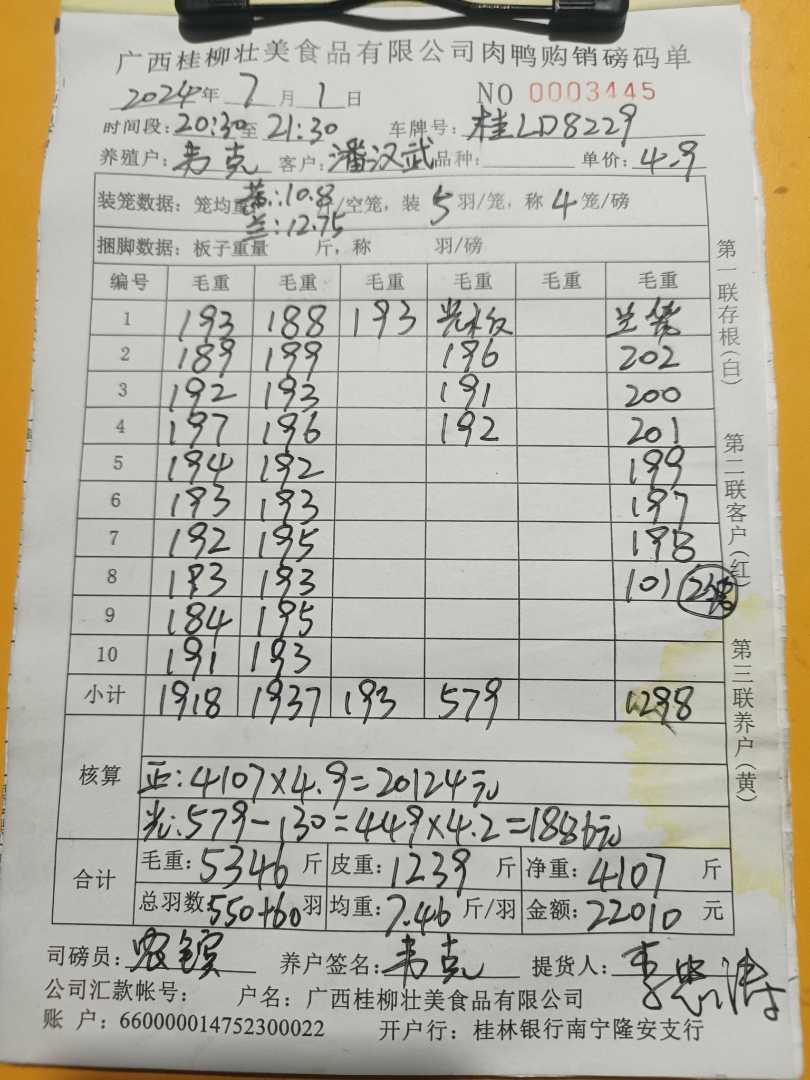 广西桂柳壮美食品有限公司肉鸭购销磅码单
2024年 7月 1日 NO 0003445
时间段:20:30至 21:30 车牌号:桂LD8229
养殖户:韦克 客户:潘汉武 品种: 单价:4.9
装笼数据:笼均重 黄:10.8 斤/空笼,装 5 羽/笼,称 4 笼/磅
兰:12.75
捆脚数据:板子重量 斤,称 羽/磅
编号 毛重 毛重 毛重 毛重 毛重 毛重
1 193 188 193 光板 兰筐
2 189 199 196 202
3 192 193 191 200
4 197 196 192 201
5 194 192 199
6 193 193 197
7 192 195 198
8 193 193 101
9 184 195
10 191 193
小计 1918 1937 193 579 1298
核算
正:4107×4.9=20124元
光:579-130=449×4.2=1886元
合计
毛重:5346斤 皮重:1239斤 净重:4107斤
总羽数:550+60羽 均重:7.46斤/羽 金额:22010元
司磅员: 养户签名:韦克 提货人:
公司汇款帐号: 户名:广西桂柳壮美食品有限公司
账 户:660000014752300022 开户行:桂林银行南宁隆安支行
第一联存根(白)
第二联客户(红)
第三联养户(黄)